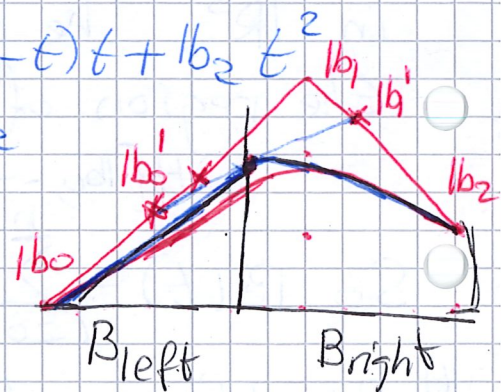 -t)t + lb₂ t²
lb₁
lb₁'
lb₀'
lb₂
lb₀
Bleft
Bright